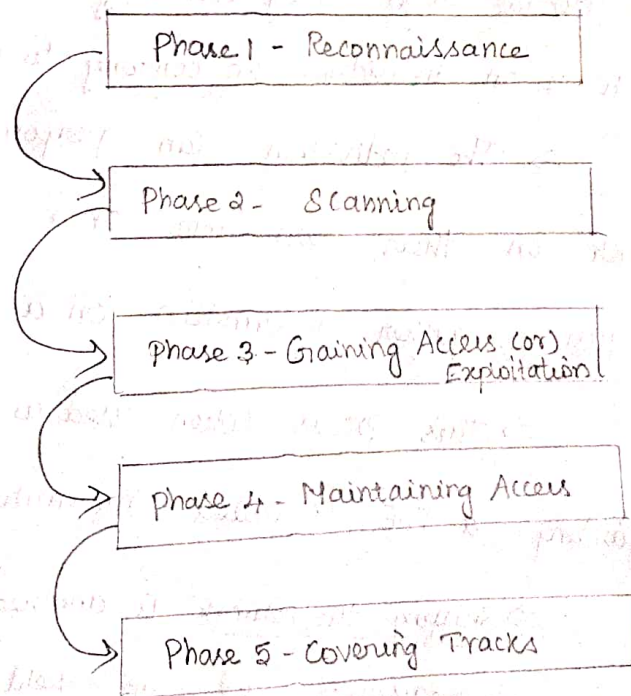 Phase 1 - Reconnaissance
Phase 2 - Scanning
Phase 3 - Gaining Access (or)
Exploitation
Phase 4 - Maintaining Access
Phase 5 - Covering Tracks